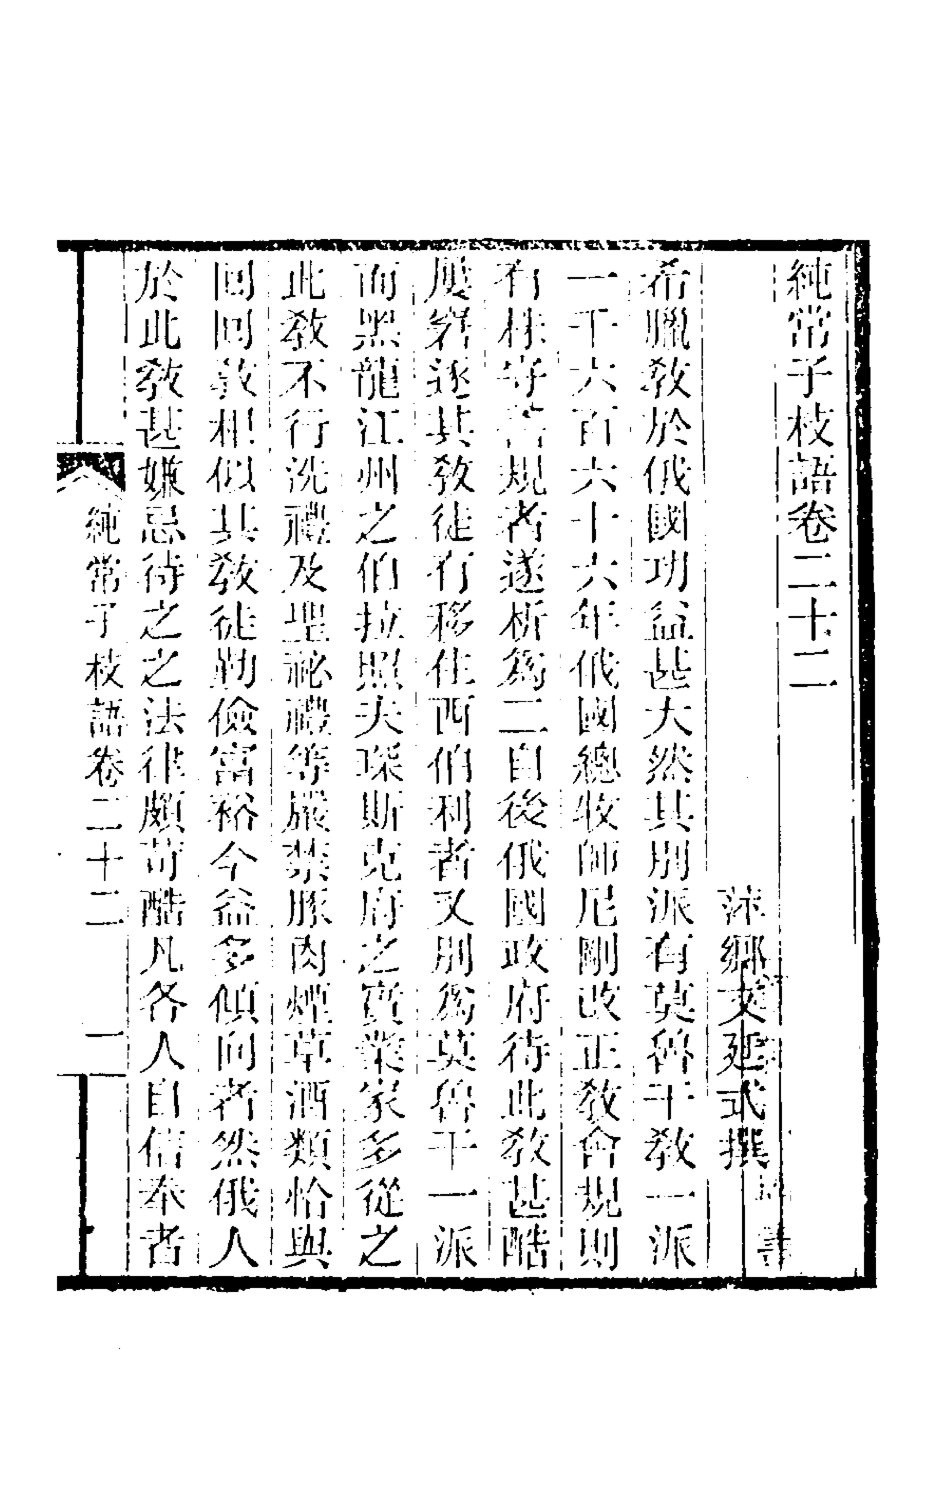 純常子枝語卷二十二
萍鄉文廷式撰
希臘敎於俄國功益甚大然其別派有莫魯干敎一派
一千六百六十六年俄國總牧師尼剛改正敎會規則
有株守舊規者遂析爲二自後俄國政府待此敎甚酷
屢窘逐其敎徒有移住西伯利者又別爲莫魯干一派
而黑龍江州之伯拉照夫琛斯克府之實業家多從之
此敎不行洗禮及聖祕禮等嚴禁豚肉煙草酒類恰與
回回敎相似其敎徒勤儉富裕今益多傾向者然俄人
於此敎甚嫌忌待之之法律頗苛酷凡各人自信奉者
純常子枝語卷二十二 一